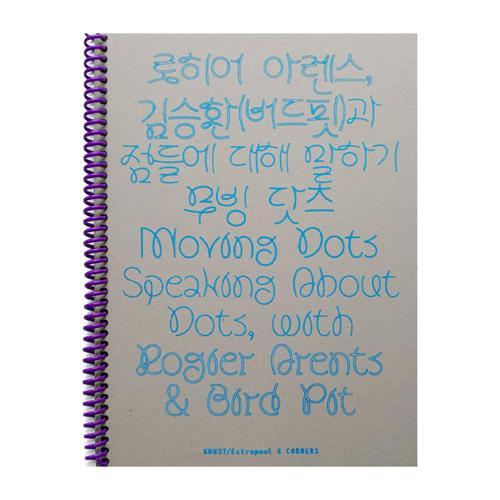 롯히어 아렌스,
김승환(버드핏)과
점들에 대해 말하기
무빙 닷츠
Moving Dots
Speaking About
Dots, with
Rogier Arents
& Bird Pit
KNUST/Extrapool & CORNERS